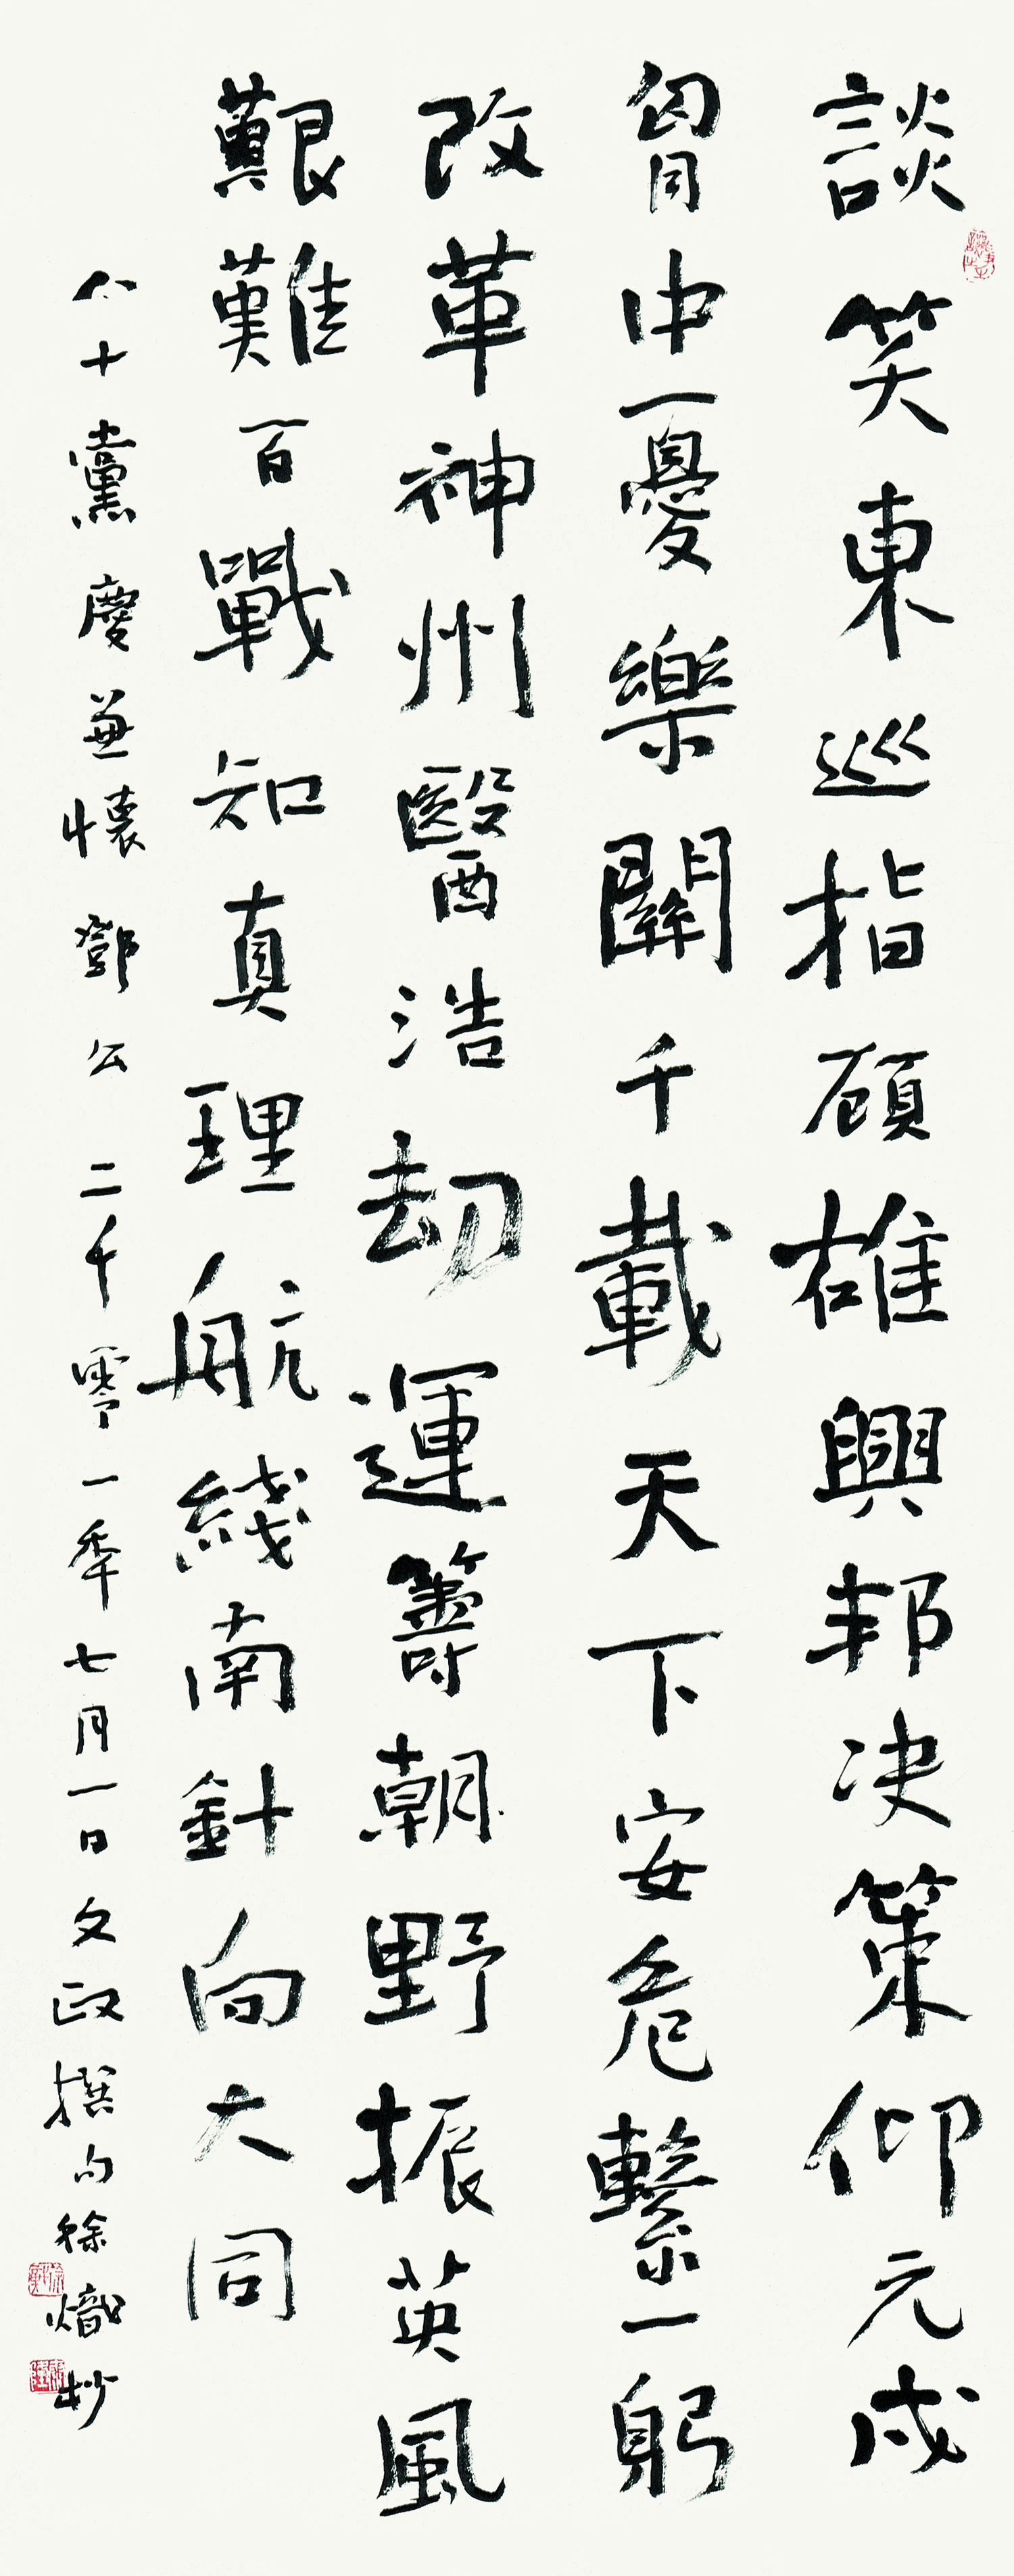 談笑東巡指顧雄興邦决策仰元戎
胷中憂樂關千載天下安危繫一躬
改革神州醫浩劫運籌朝野振英風
艱難百戰知真理航綫南針向大同
八十黨慶兼懷鄧公二千零一年七月一日文政撰句徐熾抄